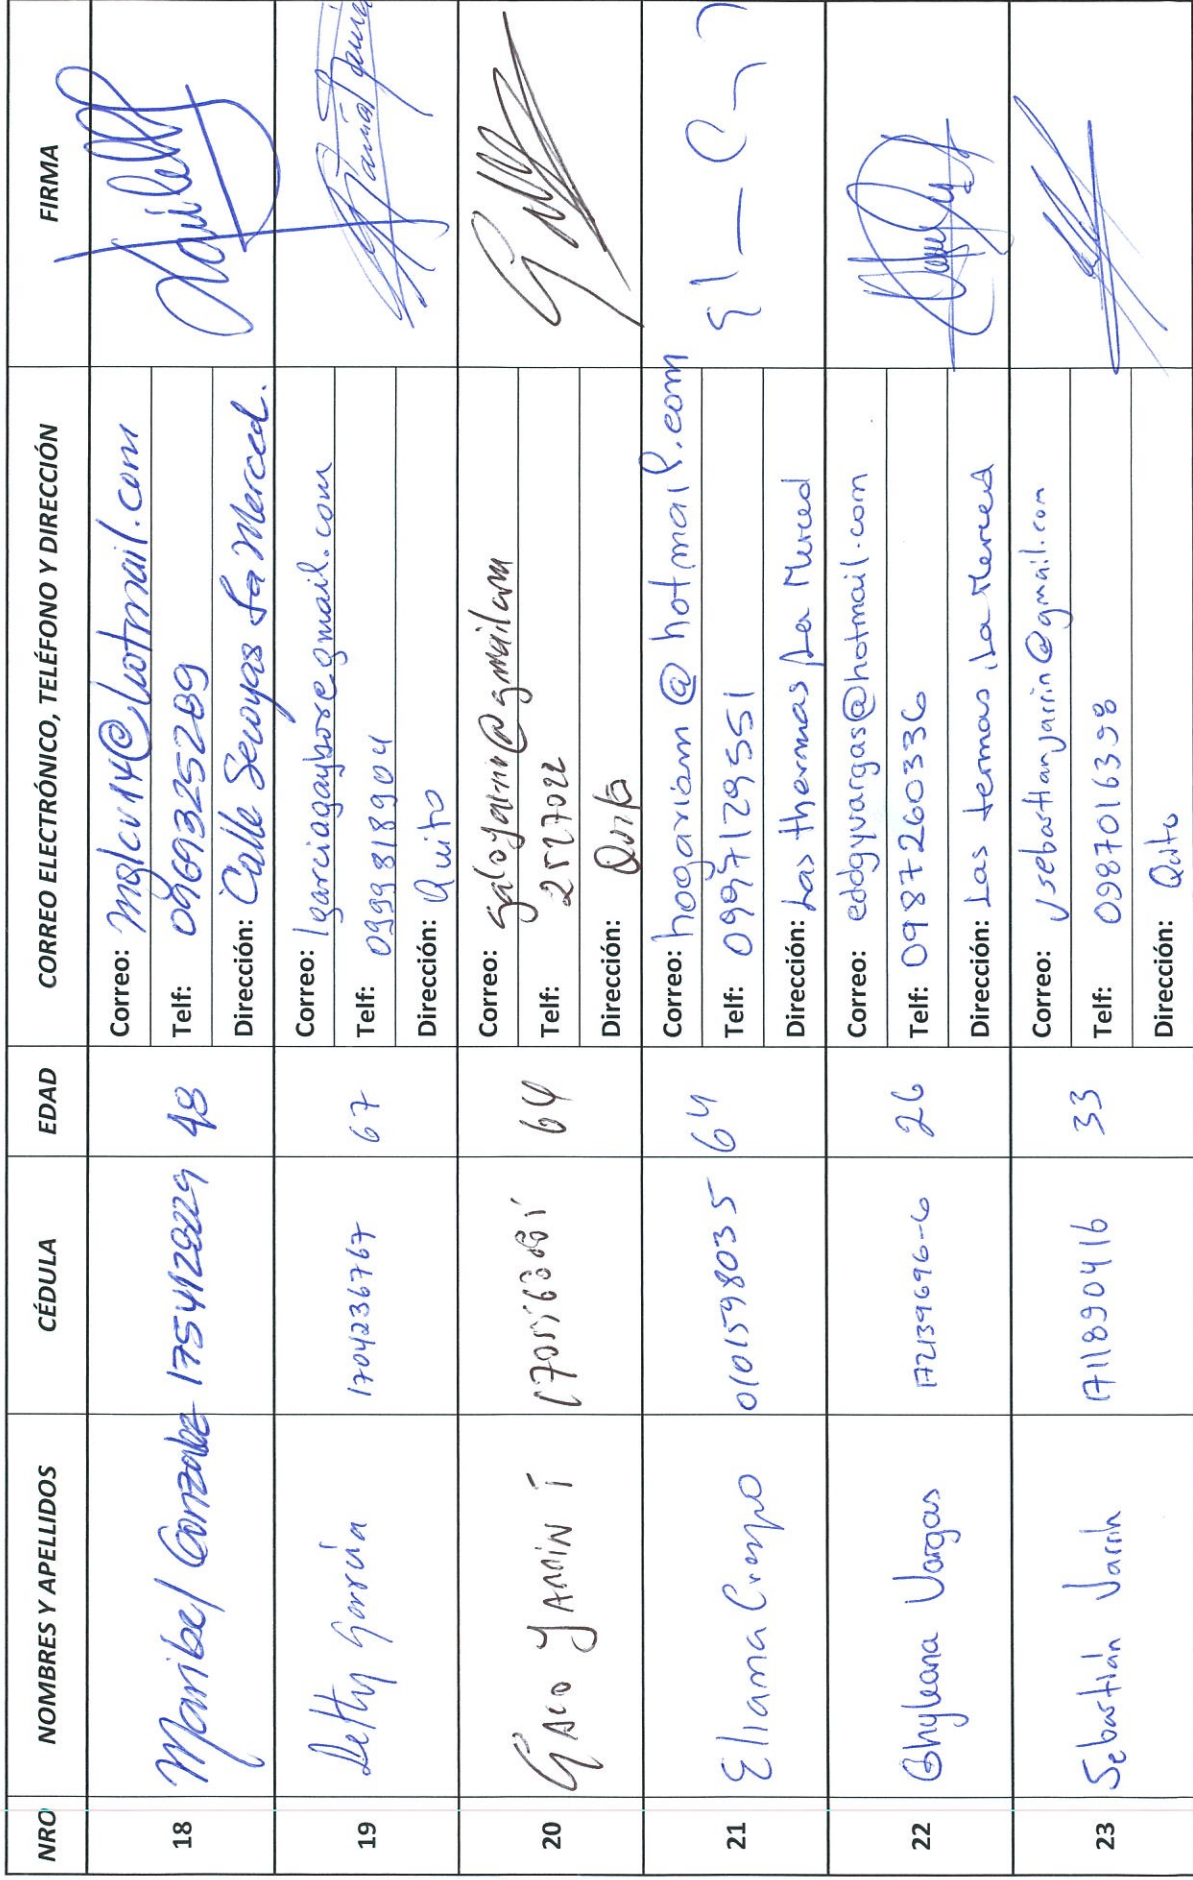 NRO NOMBRES Y APELLIDOS CÉDULA EDAD CORREO ELECTRÓNICO, TELÉFONO Y DIRECCIÓN FIRMA
18 Maribel Gonzalez 1754129229 48
Correo: mglcv14@hotmail.com
Telf: 0969325289
Dirección: Calle Secoyas La Merced.
19 Letty García 1704236767 67
Correo: lgarciagaybor@gmail.com
Telf: 0999818904
Dirección: Quito
20 GALO JARRIN 64
Correo: galojarrin@gmail.com
Telf: 2527022
Dirección: Quito
21 Eliana Crespo 0101598035 64
Correo: hogariam@hotmail.com
Telf: 0997129551
Dirección: Las thermas La Merced
22 Ghyleana Vargas 172139696-6 26
Correo: eddgyvargas@hotmail.com
Telf: 0987260336
Dirección: Las termas, La Merced
23 Sebastián Jarrín 1711890416 33
Correo: jsebastianjarrin@gmail.com
Telf: 0987016398
Dirección: Quito